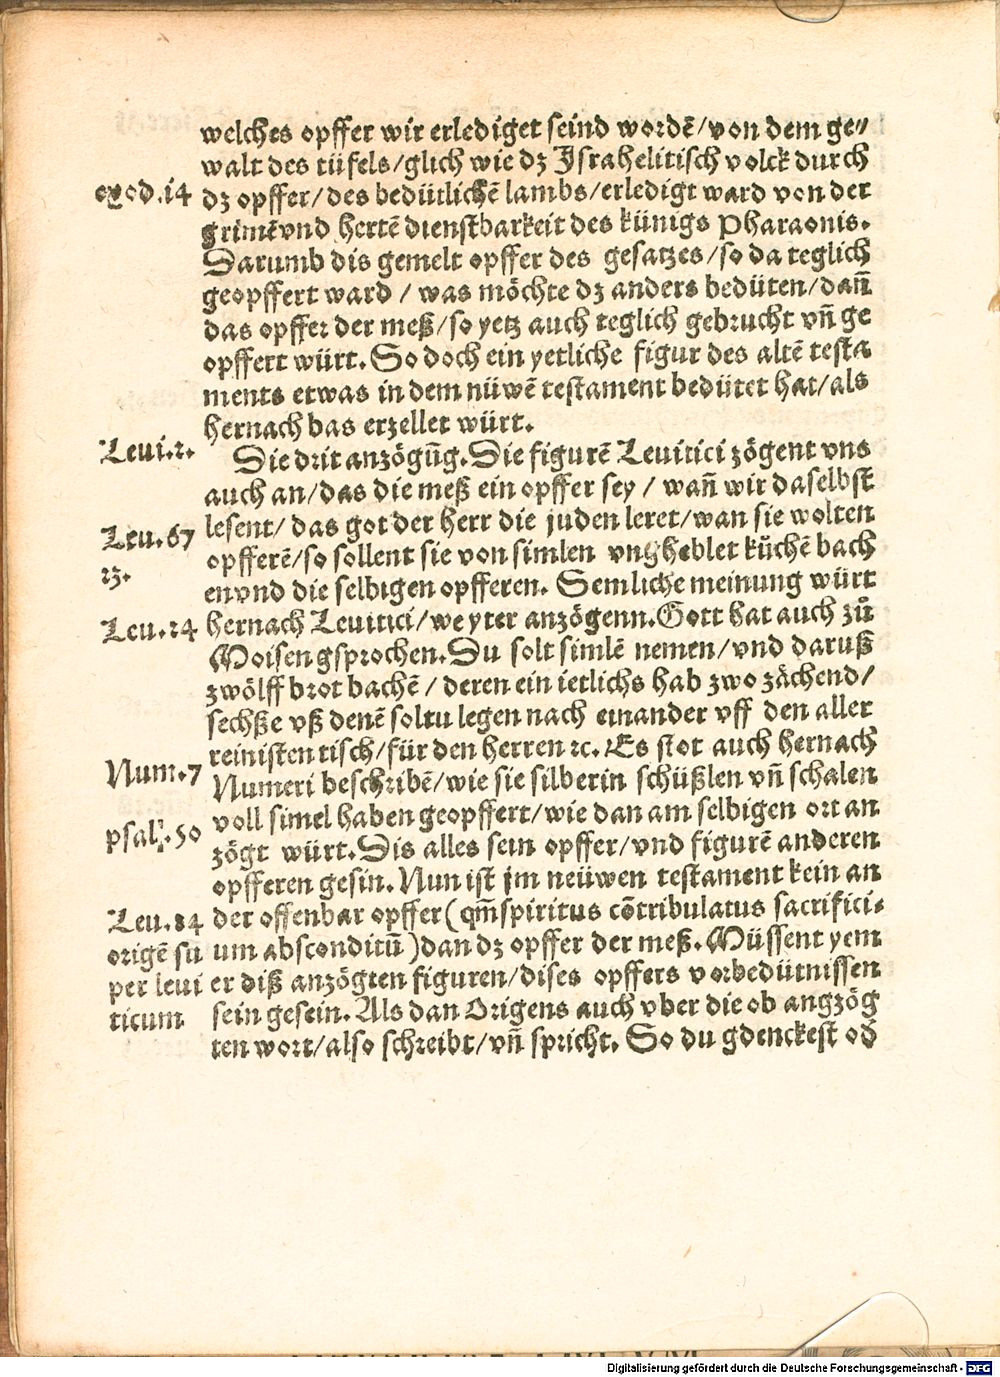 welches opffer wir erlediget seind wordē/von dem ge⸗
walt des tüfels/glich wie dz Israhelitisch volck durch
exod.14 dz opffer/des bedütlichē lambs/erledigt ward von der
grimēvnd hertē dienstbarkeit des künigs Pharaonis.
Darumb dis gemelt opffer des gesatzes/so da teglich
geopffert ward / was möchte dz anders bedüten/dañ
das opffer der meß/so yetz auch teglich gebrucht vñ ge
opffert würt. So doch ein yetliche figur des altē testa
ments etwas in dem nüwē testament bedütet hat/als
hernach bas erzellet würt.
Leui.2. Die drit anzögūg. Die figurē Leuitici zögent vns
auch an/das die meß ein opffer sey / wañ wir daselbst
Leu.67 lesent/ das got der herr die juden leret/wan sie wolten
opfferē/so sollent sie von simlen vngheblet kůchē bach
23. en vnd die selbigen opfferen. Semliche meinung würt
Leu.24 hernach Leuitici/weyter anzögenn. Gott hat auch zů
Moisen gsprochen. Du solt simlē nemen/vnd daruß
zwölff brot bachē / deren ein ietlichs hab zwo zächend/
sechße vß denē soltu legen nach einander vff den aller
reinisten tisch/für den herren ꝛc. Es stot auch hernach
Num.7 Numeri beschribē/wie sie silberin schüßlen vñ schalen
voll simel haben geopffert/wie dan am selbigen ort an
psal.50 zögt würt. Dis alles sein opffer/vnd figurē anderen
opfferen gesin. Nun ist jm neüwen testament kein an
Leu.24 der offenbar opffer (qm̄ spiritus cōtribulatus sacrifici⸗
origē su um absconditū) dan dz opffer der meß. Müssent yem
per leui er diß anzögten figuren/dises opffers vorbedütnissen
ticum sein gesein. Als dan Origens auch vber die ob angzög
ten wort/also schreibt/vñ spricht. So du gdenckest od
Digitalisierung gefördert durch die Deutsche Forschungsgemeinschaft - DFG